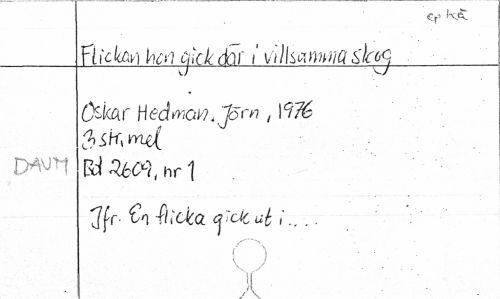 ep kä
Flickan hon gick där i villsamma skog
Oskar Hedman. Jörn, 1976
3 str, mel
DAUM Bd 2609, nr 1
Jfr. En flicka gick ut i....